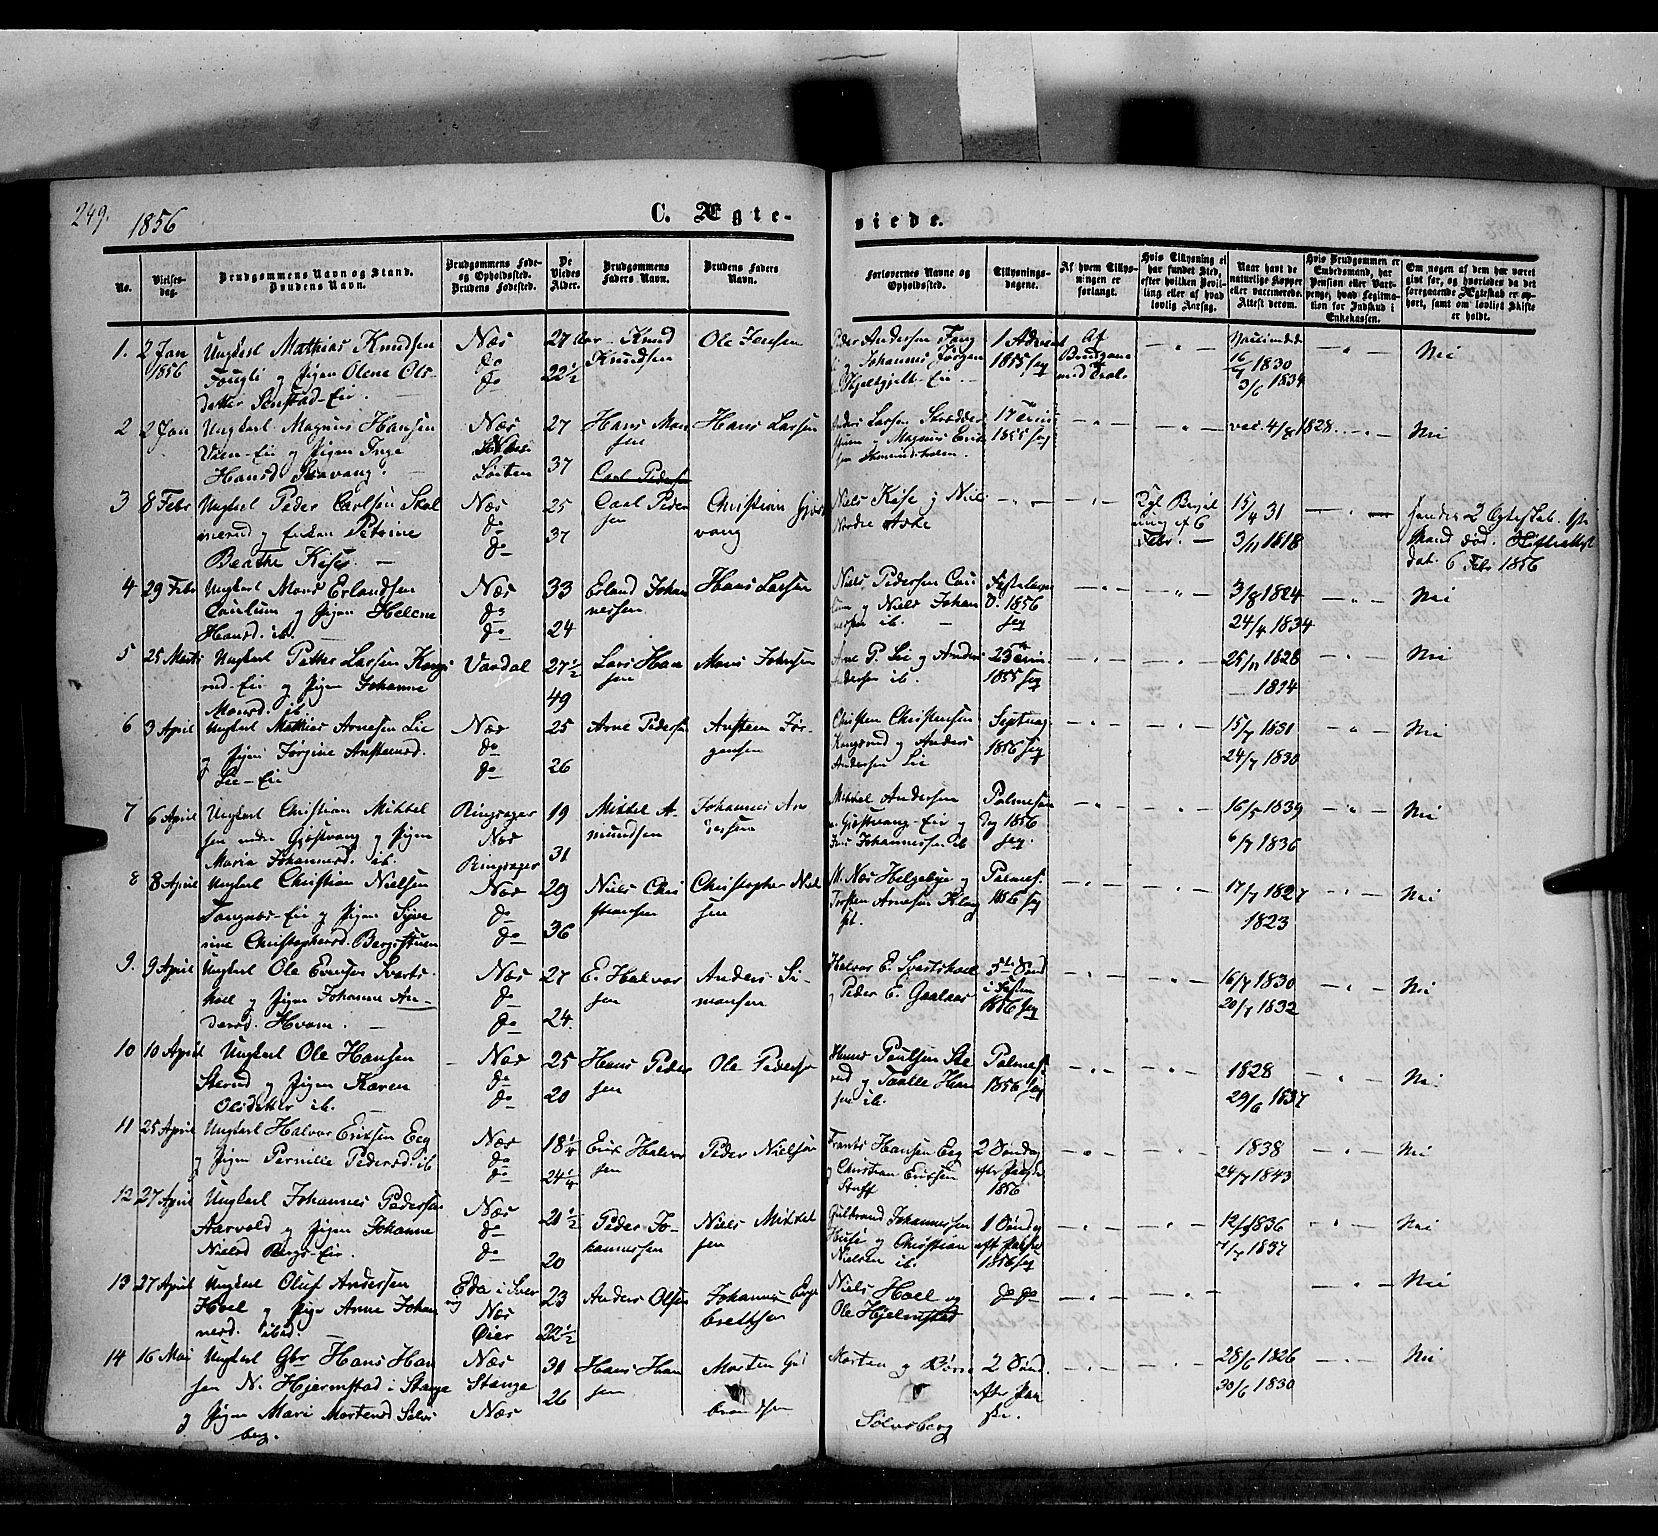 249.
1856
C. Ægte-
viede.
No.
Vielses-
dag.
Brudgommens Navn og Stand.
Brudens Navn.
Brudgommens Føde-
og Opholdssted.
Brudens Fødested.
De
Viedes
Alder.
Brudgommens
Faders Navn.
Brudens Faders
Navn.
Forlovernes Navne og
Opholdssted.
Tillysnings-
dagene.
Af hvem Tillys-
ningen er
forlangt.
Hvis Tillysning ei
har fundet Sted,
efter hvilken Bevil-
ling eller af hvad
lovlig Aarsag.
Naar havt de
naturlige Kopper
eller vaccinerede.
Attest derom.
Hvis Brudgommen er
Embedsmand, har
Pension eller Vart-
penge, hvad Legitima-
tion for Indskud i
Enkekassen.
Om nogen af dem har været
givt før, og hvorledes da det
foregaaende Ægteskab er op-
hørt, samt om lovligt Skifte
er holdt.
1. 2 Jan 1856
Ungkarl Mathias Knudsen
og Pigen Olene Ols-
datter Eie.
Næs
do
do
27 Aar
22 1/2
Knud
Knudsen
Ole Jensen
Peder Andersen
Johannes Jørgen
Eie
1 Advent
1855
Af
Brudgom
Vaccinerede
1830
3/6 1834
Nei
2 2 Jan
Ungkarl Magnus Hansen
Eie og Pigen Inge
Hansd
Næs
Løiten
27
37
Hans Mon
sen
Carl Peders
Hans Larsen
Anders Larsen
og Magnus Erik
sen
17
1855
vac. 4/8 1828
Nei
3 8 Febr
Ungkarl Peder Carlsen Skol
merud og Enken Petrine
Beathe Kise
Næs
do
do
25
37
Carl Peder
sen
Christian Gjøs
vang
Niels Kise og Niels
Nordre
Kgl Bevil
ning af 6
Febr.
15/4 31
3/11 1818
hendes 2 Ægteskab. 1ste
Mand død.
dat. 6 Febr 1856
4 29 Febr
Ungkarl Mons Erlandsen
og Pigen Helene
Hansd. ib.
Næs
do
do
33
24
Erland Johan
nessen
Hans Larsen
Niels Pedersen
og Niels Johan
nessen ib.
Fastelavns
S. 1856
3/8 1824
24/4 1834
Nei
5 25 Marts
Ungkarl Petter Larsen Kongs
rud-Eie og Pigen Johanne
Monsd. ib.
Vardal
27 1/2
49
Lars Han
sen
Mons Johnsen
Arne P. Lie og Anders
Andersen ib.
1855
25/11 1828
1814
Nei
6 3 April
Ungkarl Mathias Arnesen Lie
og Pigen Jørgine Anstensd.
Lie-Eie
Næs
do
do
25
26
Arne Pedersen
Ansteen Jør-
gensen
Christen Christensen
Kongsrud og Anders
Andersen Lie
Septuag
1856
15/7 1831
24/7 1830
Nei
7 6 April
Ungkarl Christian Mikkel
sen nedre Gjøstvang og Pigen
Maria Johannesd. ib.
Ringsager
Næs
Ringsager
19
31
Mikkel A-
mundsen
Johannes An
dersen
Mikkel Andersen
Gjøstvang-Eie og
Johannessen ib
Palmesøn
dag 1856
16/5 1839
6/7 1836
Nei
8 8 April
Ungkarl Christian Nielsen
Tangnes-Eie og Pigen Syve
rine Christophersd. Bergsstuen
Næs
do
do
29
36
Niels Chri
stiansen
Christopher Niel
sen
M. Næs Helgebye og
Torsten Arnesen
Palmes.
1856
17/7 1827
1823
Nei
9. 9 April
Ungkarl Ole Evensen Svarts-
hoel og Pigen Johanne An-
dersd. Hvam.
Næs
do
do
27
24
E. Halvor
sen
Anders Si-
monsen
Halvor E. Svartshoel
og Peder E. Gaalaas
5te Sønd
i Fasten
1856
16/7 1830
20/7 1832
Nei
10 10 April
Ungkarl Ole Hansen
Sterud og Pigen Karen
Olsdatter ib.
Næs
do
do
25
20
Hans Peder
sen
Ole Peders
Hans Paulsen Ste
rud og Taalle Han
sen ib.
Palmes.
1856
1828
29/6 1837
Nei
11 25 April
Ungkarl Halvor Eriksen Eeg
og Pigen Pernille Pedersd. ib
Næs
do
do
18 1/4
24 1/4
Eric Halvor
sen
Peder Nielsen
Frants Hansen Eeg
og Christian Eriksen
2 Søndag
efter Paaske
1856
1838
24/7 1843
Nei
12 27 April
Ungkarl Johannes Pedersen
Aarvold og Pigen Johanne
Nielsd Bergs-Eie.
Næs
do
do
21 1/2
20
Peder Jo-
hannessen
Niels Mikkel
sen
Gulbrand Johannessen
Huse og Christian
Nielsen ib.
1 Søndag
eft Paaske
1856
12/8 1836
7/7 1837
Nei
13 27 April
Ungkarl Oluf Andersen
Hoel og Pige Anne Johan
nesd. ibid.
Eda i Sver
rig
Næs
Øier
23
22 1/2
Anders Olsen
Johannes Enge
brettsen
Niels Hoel og
Ole Hjelmstad
do do
Nei
14 16 Mai
Ungkarl Gbr Hans Han
sen N. Hjermstad i Stange
og Pigen Mari Mortensd Sølvs
berg.
Næs
Stange
Næs
31
26
Hans Han
sen
Morten Gul
brandsen
Morten og Børre
Sølvsberg
2 Sønd.
efter Paa
ske.
28/6 1826
30/6 1830
Nei